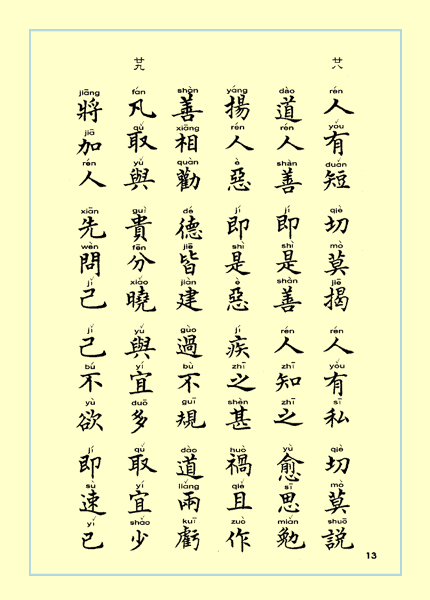 廿八
rén yǒu duǎn qiè mò jiē rén yǒu sī qiè mò shuō
人有短 切莫揭 人有私 切莫說
dào rén shàn jí shì shàn rén zhī zhī yù sī miǎn
道人善 即是善 人知之 愈思勉
yáng rén è jí shì è jí zhī shèn huò qiě zuò
揚人惡 即是惡 疾之甚 禍且作
shàn xiāng quàn dé jiē jiàn guò bù guī dào liǎng kuī
善相勸 德皆建 過不規 道兩虧
廿九
fán qǔ yǔ guì fēn xiǎo yǔ yí duō qǔ yí shǎo
凡取與 貴分曉 與宜多 取宜少
jiāng jiā rén xiān wèn jǐ jǐ bú yù jí sù yǐ
將加人 先問己 己不欲 即速已
13